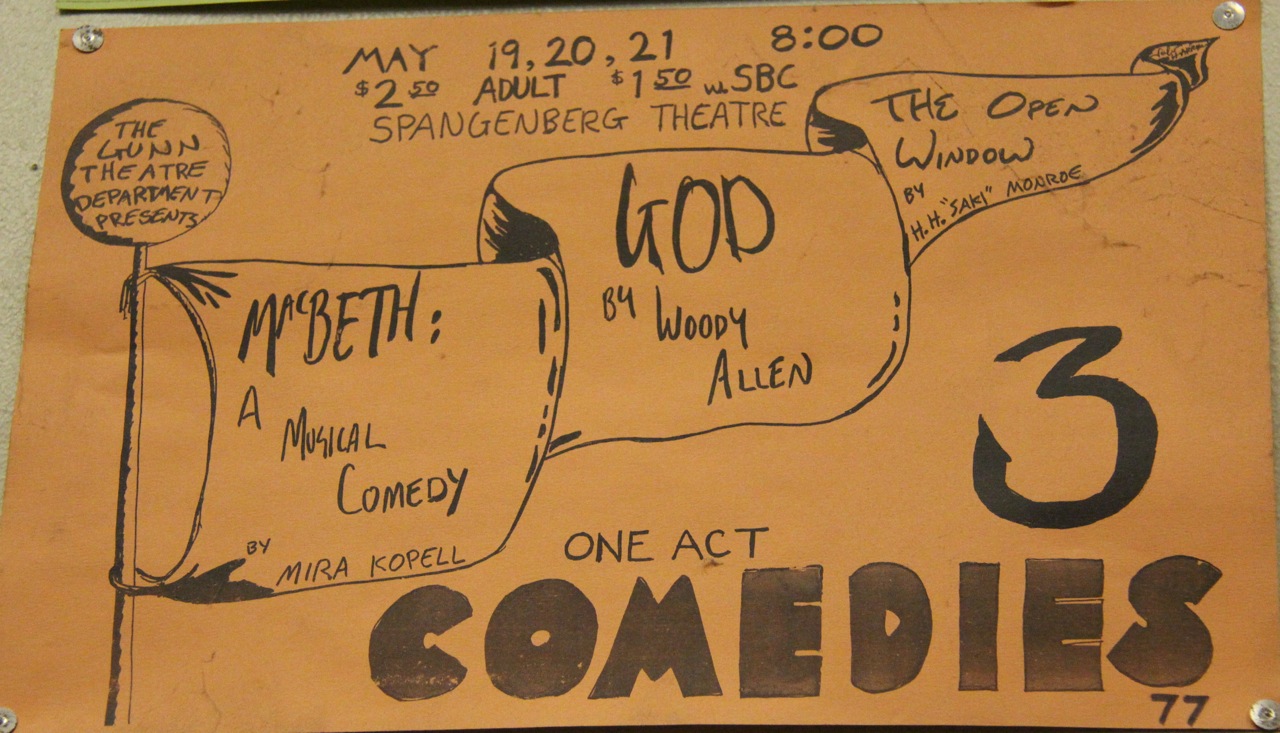 MAY 19, 20, 21 8:00
$2 50 ADULT $1 50 w. SBC
SPANGENBERG THEATRE
THE
GUNN
THEATRE
DEPARTMENT
PRESENTS
MACBETH:
A
MUSICAL
COMEDY
BY
MIRA KOPELL
GOD
BY WOODY
ALLEN
THE OPEN
WINDOW
BY
H.H. "SAKI" MONROE
3
ONE ACT
COMEDIES
77